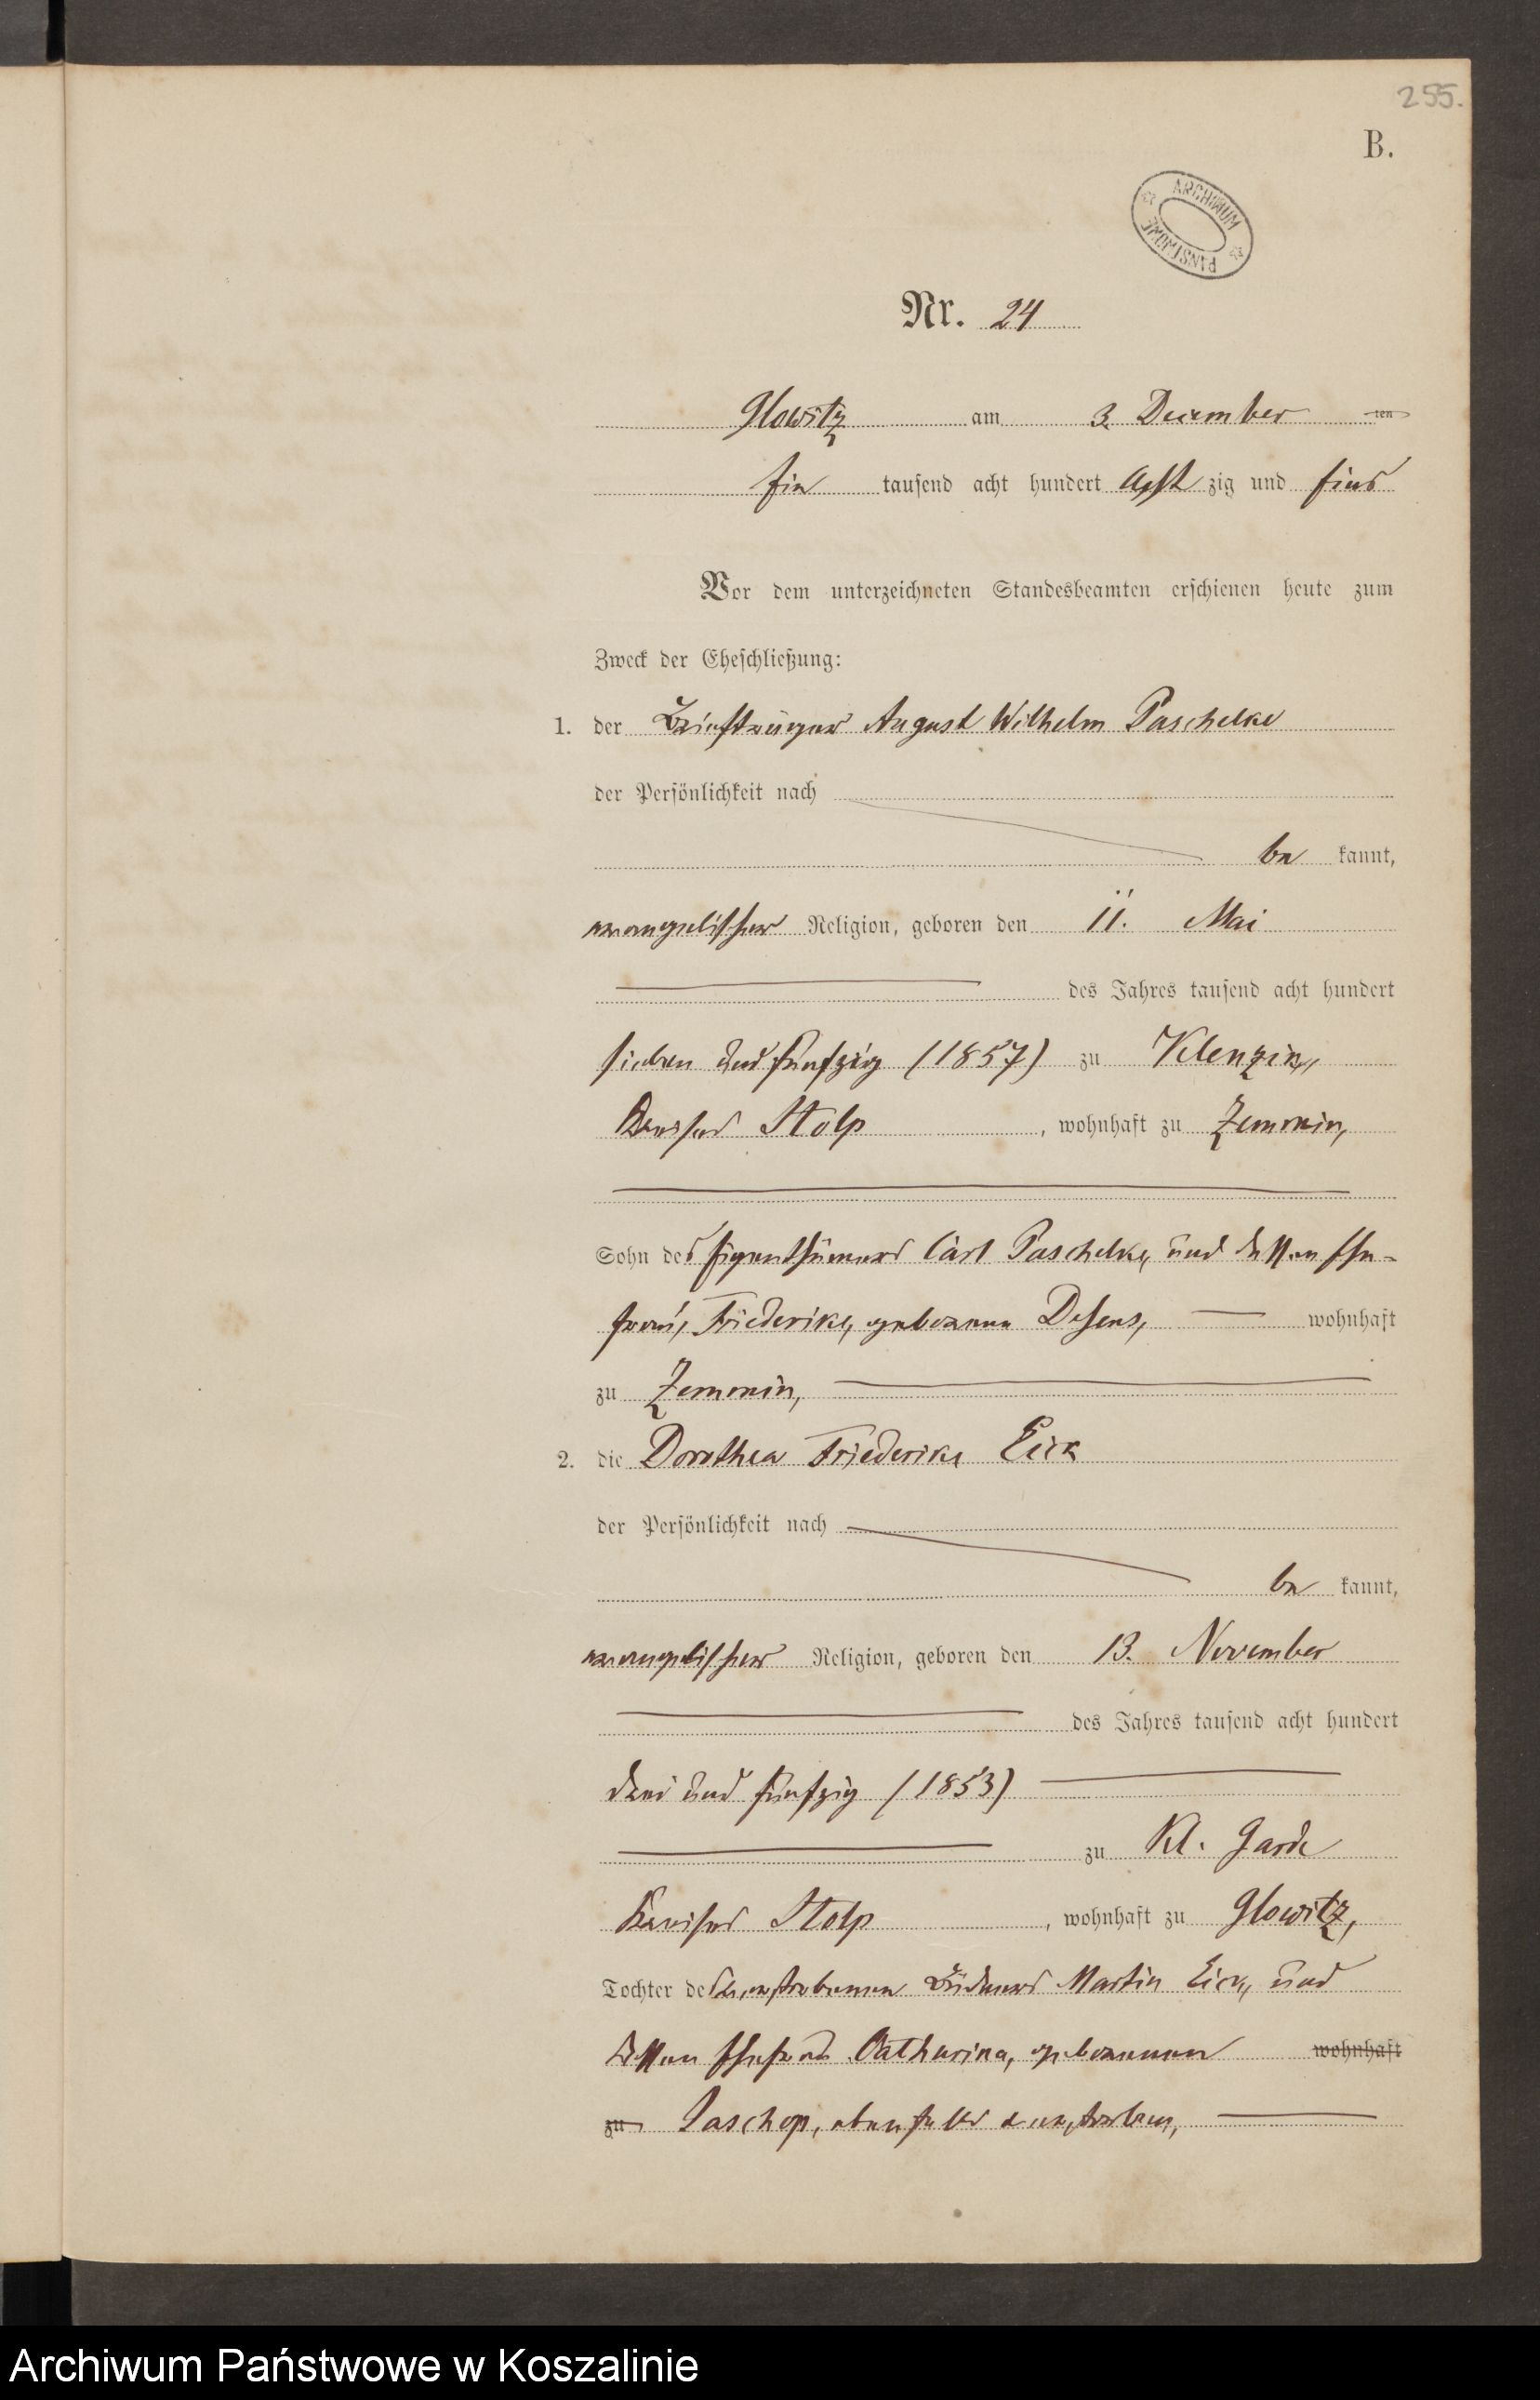 255.
B.
ARCHIWUM PAŃSTWOWE
Nr. 24
Glowitz am 3. December ten
Ein tausend acht hundert Acht zig und eins
Vor dem unterzeichneten Standesbeamten erschienen heute zum
Zweck der Eheschließung:
1. der Briefträger August Wilhelm Paschelke
der Persönlichkeit nach
be kannt,
evangelischer Religion, geboren den 11. Mai
des Jahres tausend acht hundert
sieben und fünfzig (1857) zu Klenzin,
Kreises Stolp, wohnhaft zu Zemmin,
Sohn des Eigenthümers Carl Paschelke, und dessen Ehe-
frau, Friederike, geborene Desens, wohnhaft
zu Zemmin,
2. die Dorothea Friederike Eick
der Persönlichkeit nach
be kannt,
evangelischer Religion, geboren den 13. November
des Jahres tausend acht hundert
drei und fünfzig (1853)
zu Kl. Garde
Kreises Stolp, wohnhaft zu Glowitz,
Tochter des verstorbenen Büdners Martin Eick, und
dessen Ehefrau Catharina, geborenen wohnhaft
zu Paschop, ebenfalls verstorben,
Archiwum Państwowe w Koszalinie